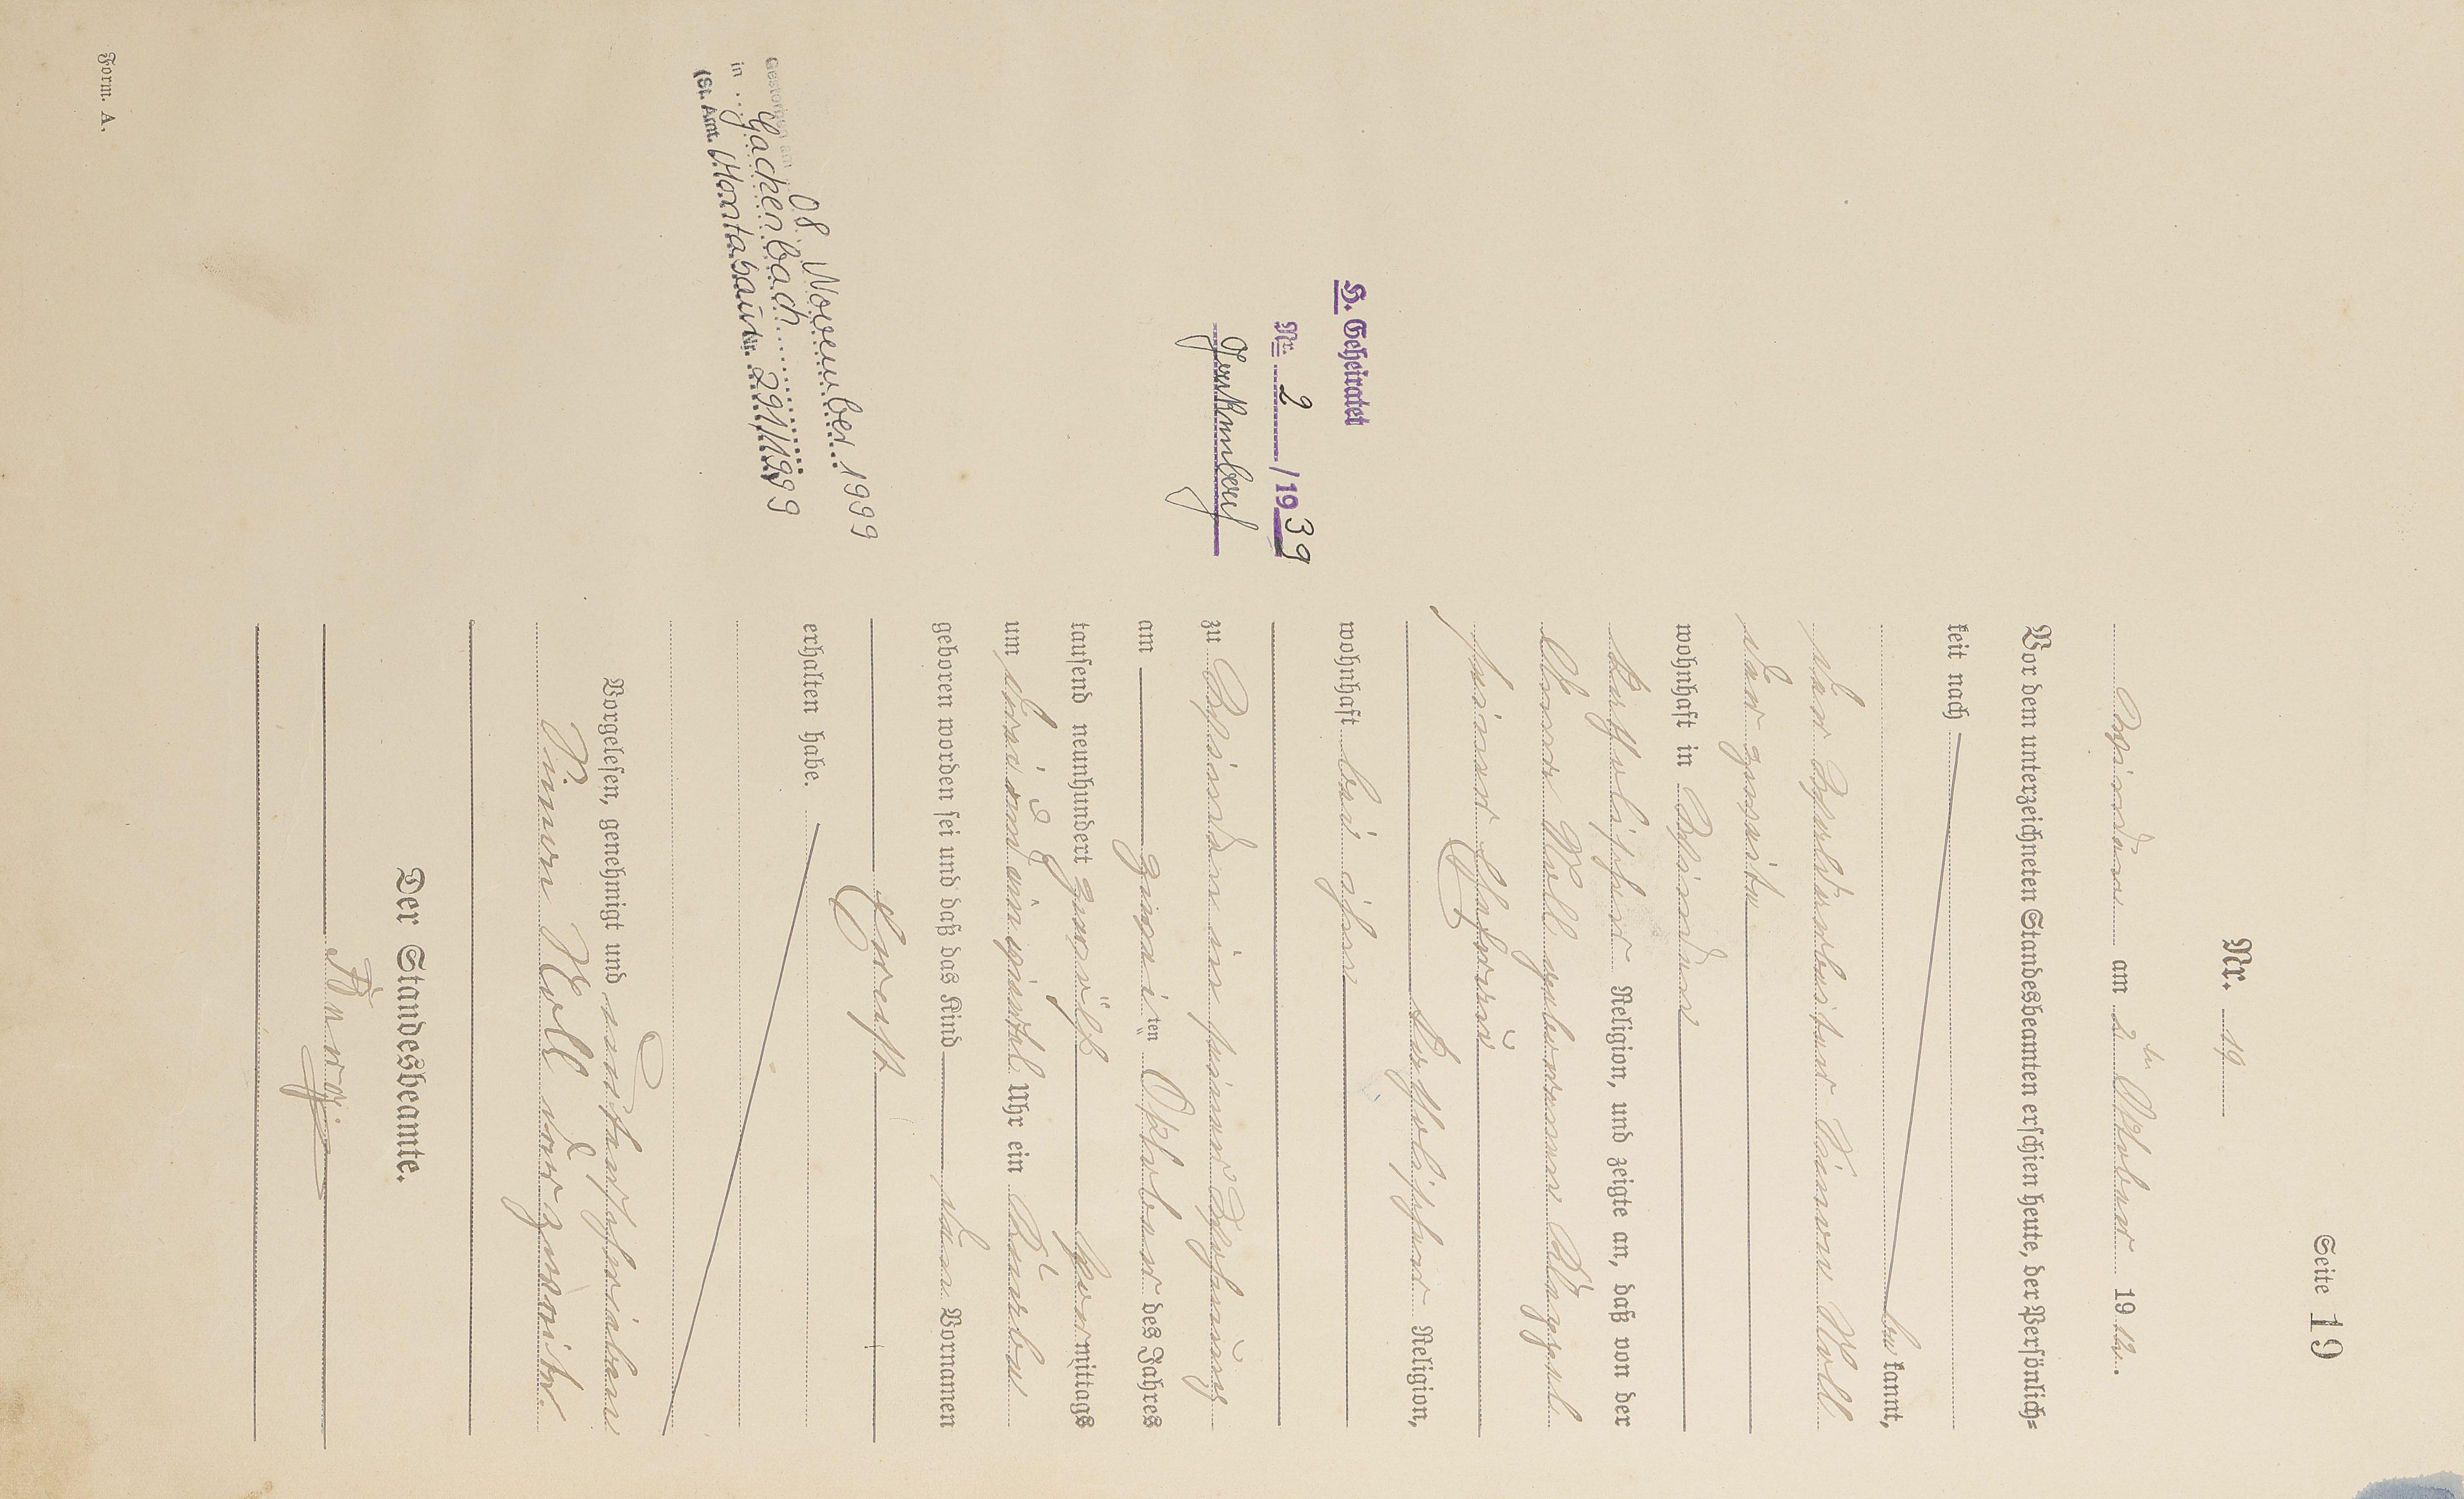 Seite 19
Nr. 19
Winden am 2ten Oktober 1912.
Vor dem unterzeichneten Standesbeamten erschien heute, der Persönlich=
keit nach
be kannt,
der Grubenarbeiter Simon Noll
der zweite
wohnhaft in Winden
katholischer Religion, und zeigte an, daß von der
Anna Noll geborenen
seiner Ehefrau
katholischer Religion,
wohnhaft bei ihm
zu Winden in seiner Wohnung
am zwei ten Oktober des Jahres
tausend neunhundert zwölf vor mittags
um drei und ein viertel Uhr ein Knabe
geboren worden sei und daß das Kind den Vornamen
Ernst
erhalten habe.
Vorgelesen, genehmigt und unterschrieben
Simon Noll der zweite.
Der Standesbeamte.
H. Geheiratet
Nr. 2 /1939
Gestorben am 08. November 1999
in Gackenbach
(St. Amt Montabaur Nr. 291/1999
Form. A.